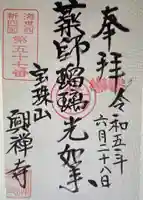 奉拝
令和五年
六月二十八日
薬師瑠璃光如来
宝珠山
興禅寺
第五十七番